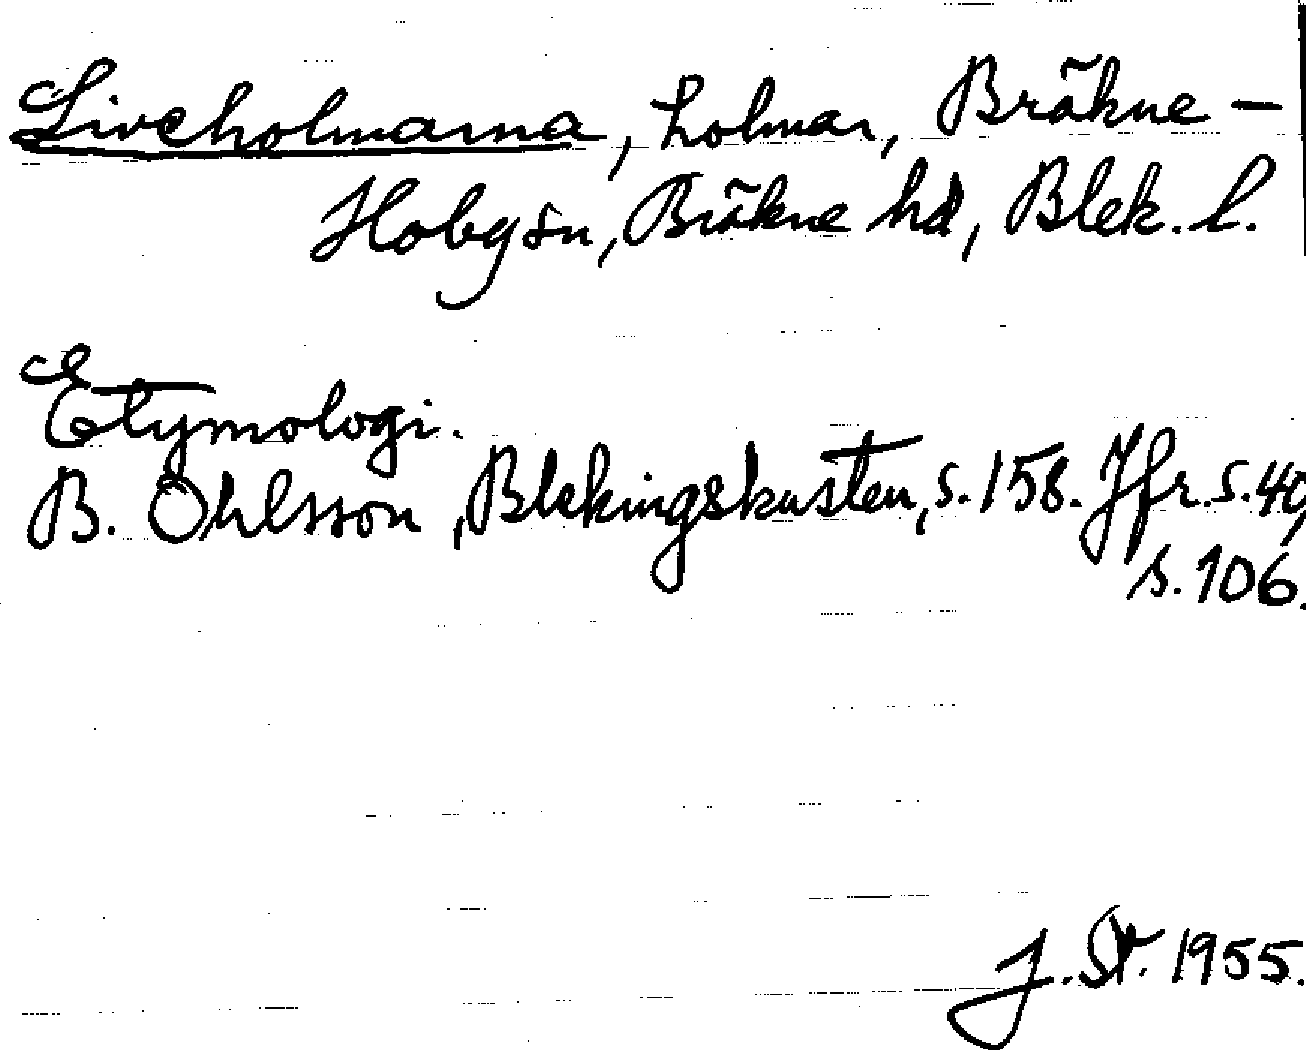 Liveholmarna, holmar, Bräkne-
Hobysn, Bräkne hd, Blek. l.
Etymologi.
B. Ohlsson, Blekingskusten, s. 158. Jfr. s. 40,
s. 106.
J. St. 1955.